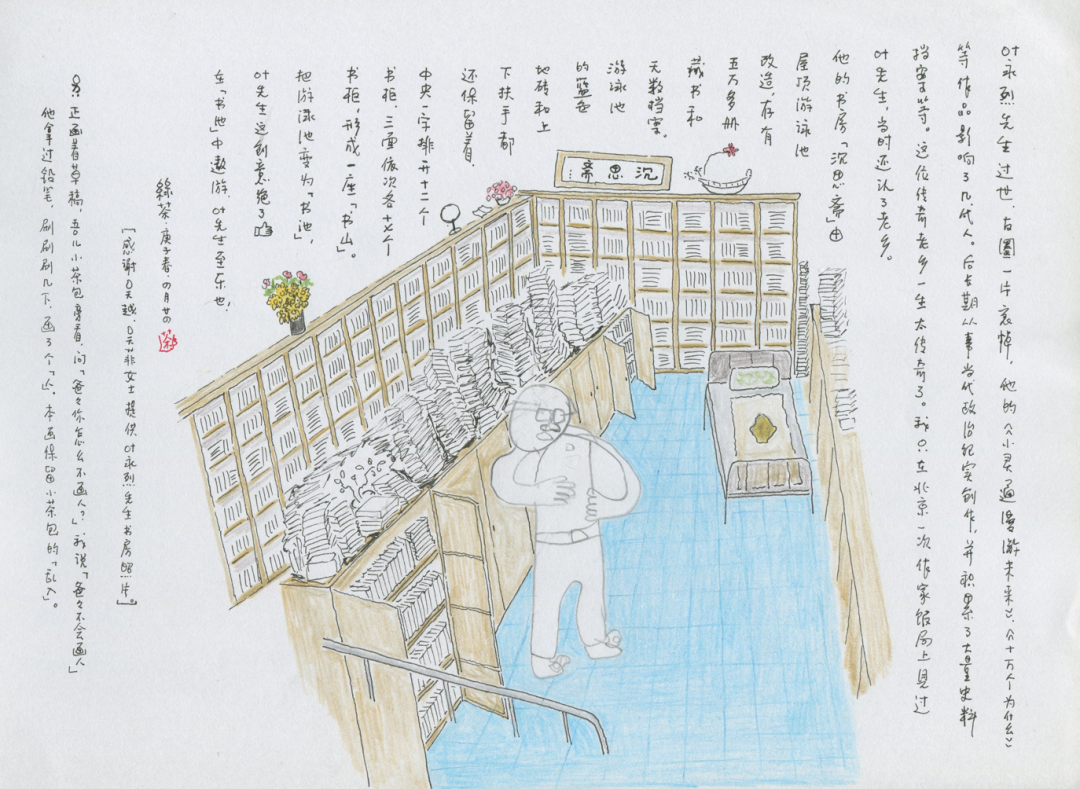 叶永烈先生过世,圈一片哀悼,他的《小灵通漫游未来》、《十万个为什么》
等作品影响了几代人。后长期从事当代政治纪实创作,并积累了大量史料
档案等等。这位传奇老乡一生太传奇了。我只在北京一次作家饭局上见过
叶先生,当时还认了老乡。
他的书房「沉思斋」由
屋顶游泳池
改造,存有
五万多册
藏书和
无数档案。
游泳池
的蓝色
地砖和上
下扶手都
还保留着,
中央一字排开十二个
书柜,三面依次各十七个
书柜,形成一座「书山」。
把游泳池变为「书池」,
叶先生这创意绝了
在「书池」中遨游,叶先生至乐也。
绿茶·庚子春·四月廿四
茶
[感谢天越、天菲女士提供叶永烈先生书房照片]。
另:正画着草稿,吾儿小茶包看,问「爸爸你怎么不画人?」我说「爸爸不会画人」
他拿过铅笔,刷刷刷几下,画了个人。本画保留小茶包的「乱入」。
沉思斋